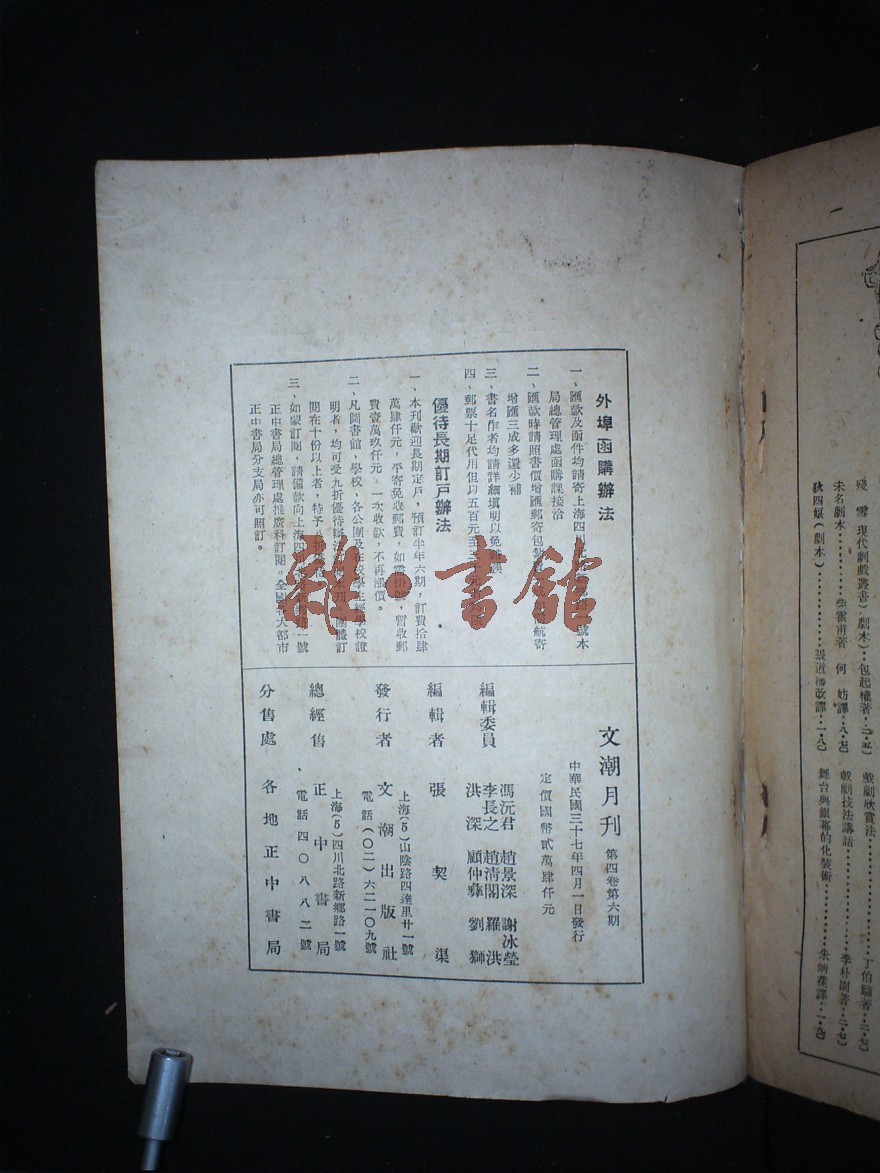 外埠函購辦法
一、匯款及函件均請寄上海四川
號本
局總管理處函購課接洽
二、匯款時請照書價增匯郵寄包
航寄
增匯三成多還少補
三、書名作者均請詳細填明以免
四、郵票十足代用但以五百元至
優待長期訂戶辦法
一、本刊歡迎長期定戶,預訂半年六期,訂費拾肆
萬肆仟元,平寄免收郵費,如
暫收郵
費壹萬玖仟元,一次收款,不再漲價。
二、凡圖書館,學校,各公團及在校學生
學校證
明者,均可受九折優待辦法
團體訂
閱在十份以上者,特予八折
三、如蒙訂閱,請備款向上海四
一號
正中書局總管理處推廣科訂閱。全國各大部市
正中書局分支局亦可照訂。
雜·書館
文潮月刊 第四卷第六期
中華民國三十七年四月一日發行
定價國幣貳萬肆仟元
編輯委員
馮沅君 趙景深 謝冰瑩
李長之 趙清閣 羅洪
洪深 顧仲彝 劉獅
編輯者 張契渠
發行者 文潮出版社
上海(5)山陰路四達里廿一號
電話(〇二)六二一〇九號
總經售 正中書局
上海(5)四川北路新鄉路一號
電話四〇八八二號
分售處 各地正中書局
殘雪(現代劇戲叢書)(劇本)‥包起權著‥二·五〇
未名劇本
霍甫著 何妨譯‥八·七〇
狄四娘(劇本)…………張道藩改譯‥一·八〇
戲劇欣賞法…………丁伯騮著‥二·七〇
戲劇技法講話…………李朴園著‥二·七〇
舞台與銀幕的化裝術…………朱炳蓀譯‥一·九〇